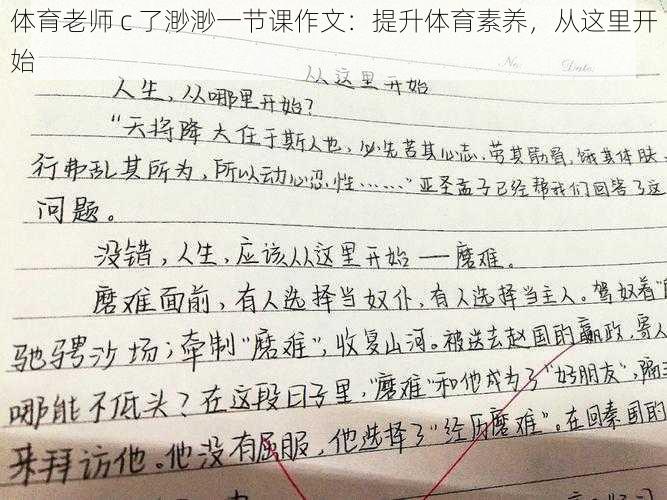 体育老师 c 了渺渺一节课作文：提升体育素养，从这里开
始
No. Date.
从这里开始
人生，从哪里开始？
“天将降大任于斯人也，必先苦其心志，劳其筋骨，饿其体肤，
行弗乱其所为，所以动心忍性……”亚圣孟子已经帮我们回答了这
问题。
没错，人生，应该从这里开始——磨难。
磨难面前，有人选择当奴仆，有人选择当主人。驾奴着“
驰骋沙场；牵制“磨难”，收复山河。被送去赵国的嬴政，寄人
哪能不低头？在这段日子里，“磨难”和他成为了“好朋友”，隔三
来拜访他。他没有屈服，他选择了“经历磨难”。在回秦国的